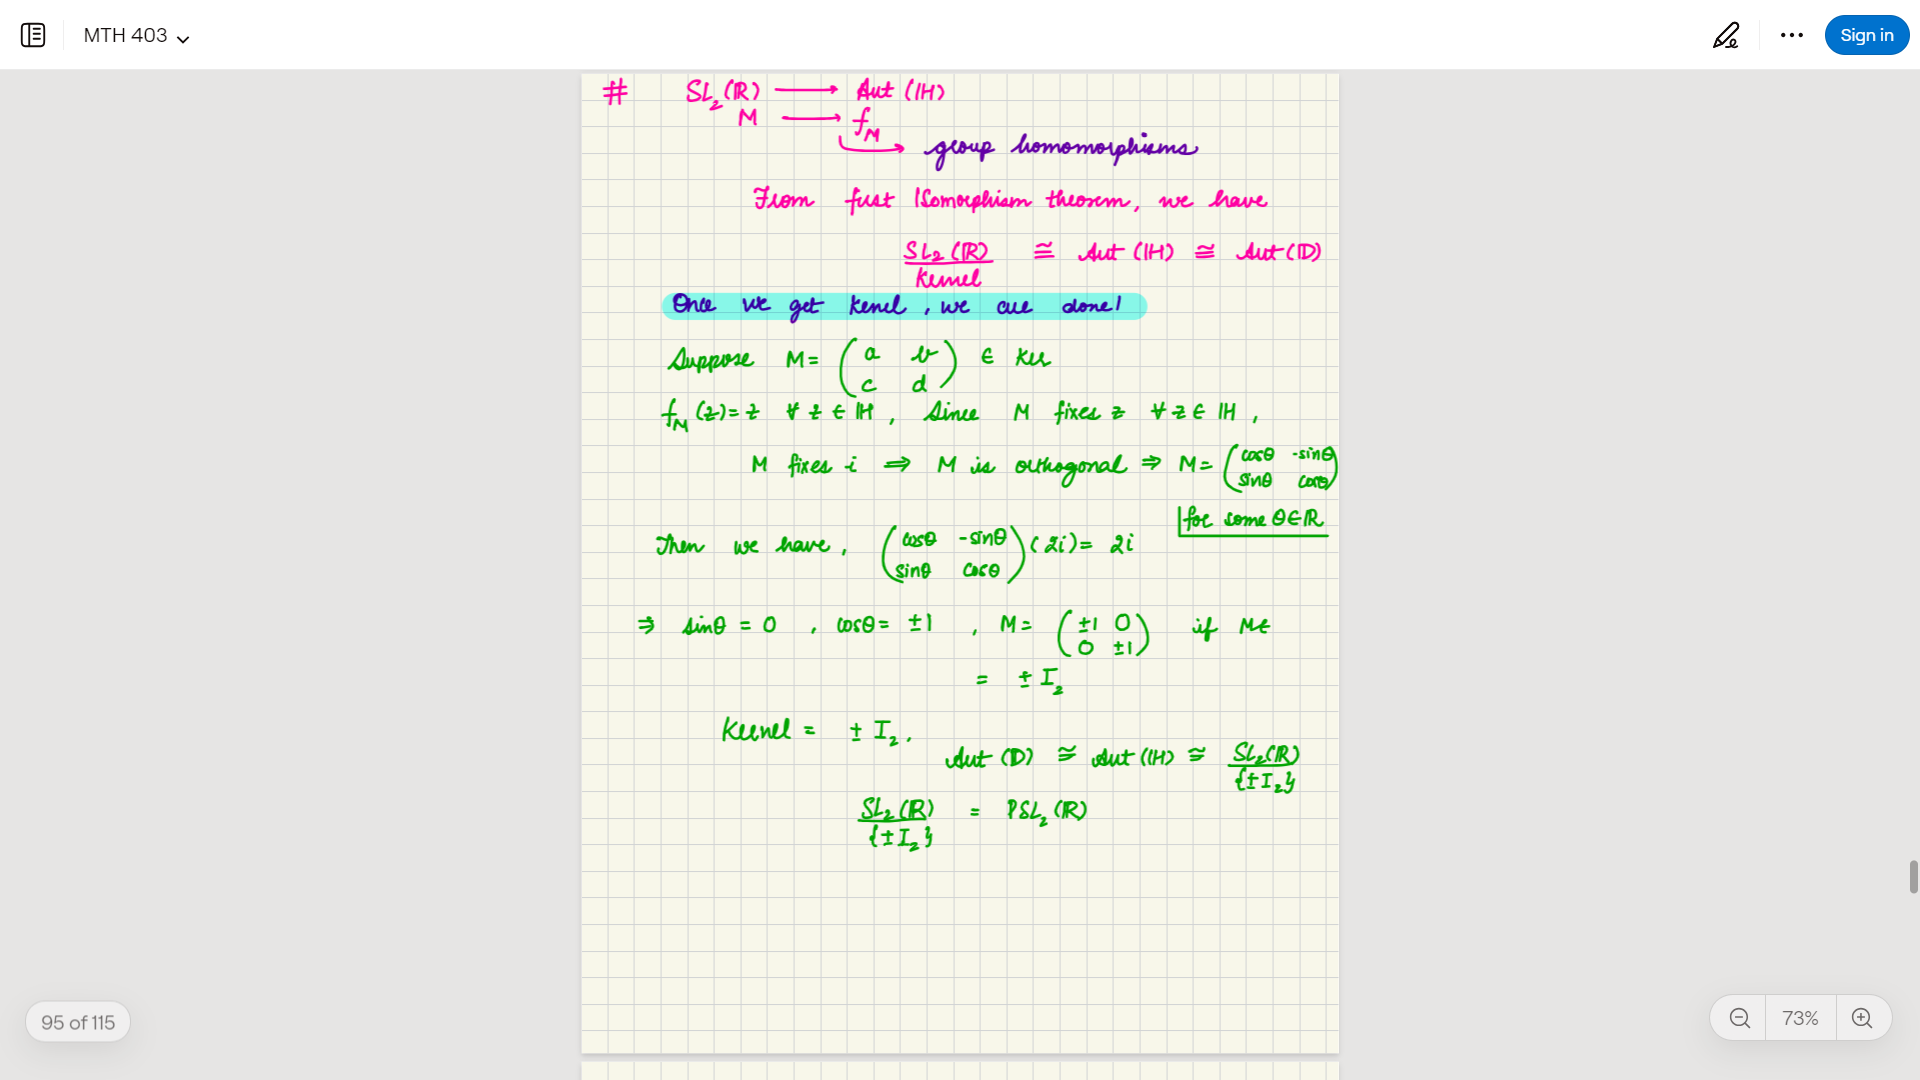 MTH 403
Sign in
# SL₂(ℝ) ⟶ Aut (ℍ)
M ⟶ f_M
group homomorphisms
From first Isomorphism theorem, we have
SL₂(ℝ)/Kernel ≅ Aut (ℍ) ≅ Aut (𝔻)
Once we get Kernel, we are done!
Suppose M = (a b; c d) ∈ Ker
f_M (z) = z ∀ z ∈ ℍ, Since M fixes z ∀ z ∈ ℍ,
M fixes i ⟹ M is orthogonal ⟹ M = (cosθ -sinθ; sinθ cosθ)
for some θ ∈ ℝ
Then we have, (cosθ -sinθ; sinθ cosθ) (2i) = 2i
⟹ sinθ = 0, cosθ = ±1, M = (±1 0; 0 ±1) if M∈
= ± I₂
Kernel = ± I₂.
Aut (𝔻) ≅ Aut (ℍ) ≅ SL₂(ℝ)/{±I₂}
SL₂(ℝ)/{±I₂} = PSL₂(ℝ)
95 of 115
73%